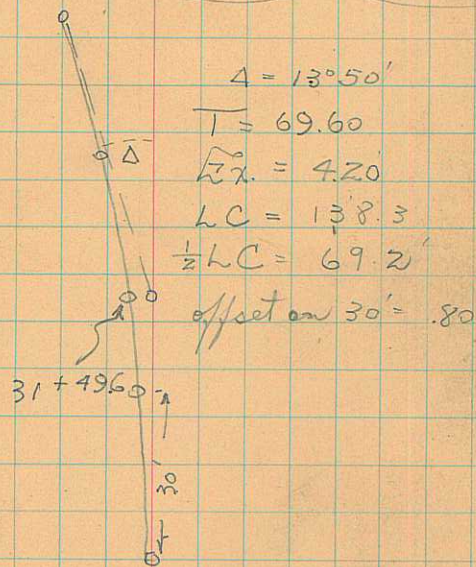 Δ = 13°50'
T = 69.60
Ex. = 4.20'
LC = 138.3
½LC = 69.2'
offset on 30' = .80
Δ
31 + 49.6
30